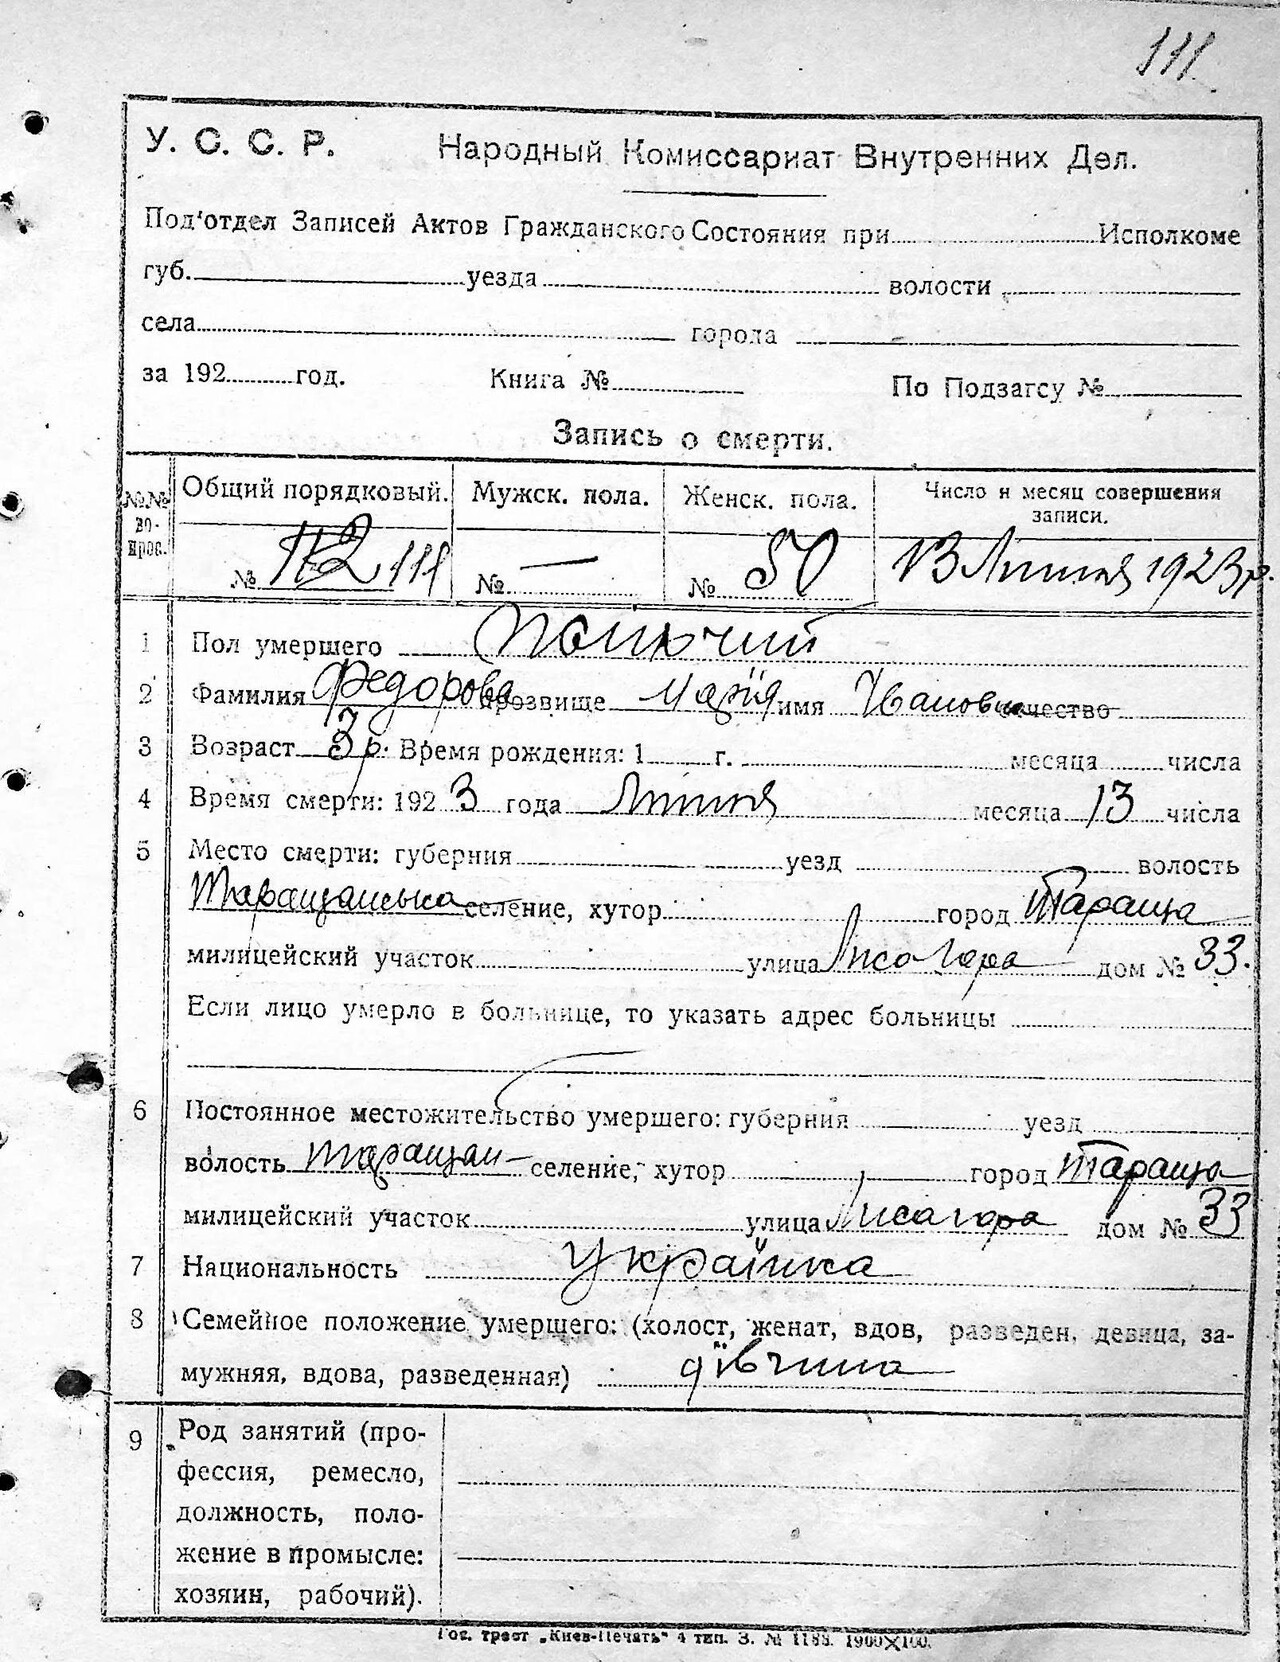 111
У. С. С. Р. Народный Комиссариат Внутренних Дел.
Под'отдел Записей Актов Гражданского Состояния при Исполкоме
губ. уезда волости
села города
за 192 год. Книга № По Подзагсу №
Запись о смерти.
№№ во- прос. Общий порядковый. Мужск. пола. Женск. пола. Число и месяц совершения записи.
№ 112 111 № — № 50 13 Липня 1923 р.
1 Пол умершего жіночий
2 Фамилия Федорова прозвище Марія имя Івановна отчество
3 Возраст 3 р. Время рождения: 1 г. месяца числа
4 Время смерти: 192 3 года Липня месяца 13 числа
5 Место смерти: губерния уезд волость
Таращанська селение, хутор город Тараща
милицейский участок улица Лиса гора дом № 33.
Если лицо умерло в больнице, то указать адрес больницы
6 Постоянное местожительство умершего: губерния уезд
волость Таращан- селение, хутор город Тараща
милицейский участок улица Лиса гора дом № 33
7 Национальность Українка
8 Семейное положение умершего: (холост, женат, вдов, разведен, девица, за-
мужняя, вдова, разведенная) дівчина
9 Род занятий (про-
фессия, ремесло,
должность, поло-
жение в промысле:
хозяин, рабочий).
Гос. трест „Киев-Печать" 4 тип. З. № 1188. 1900×100.